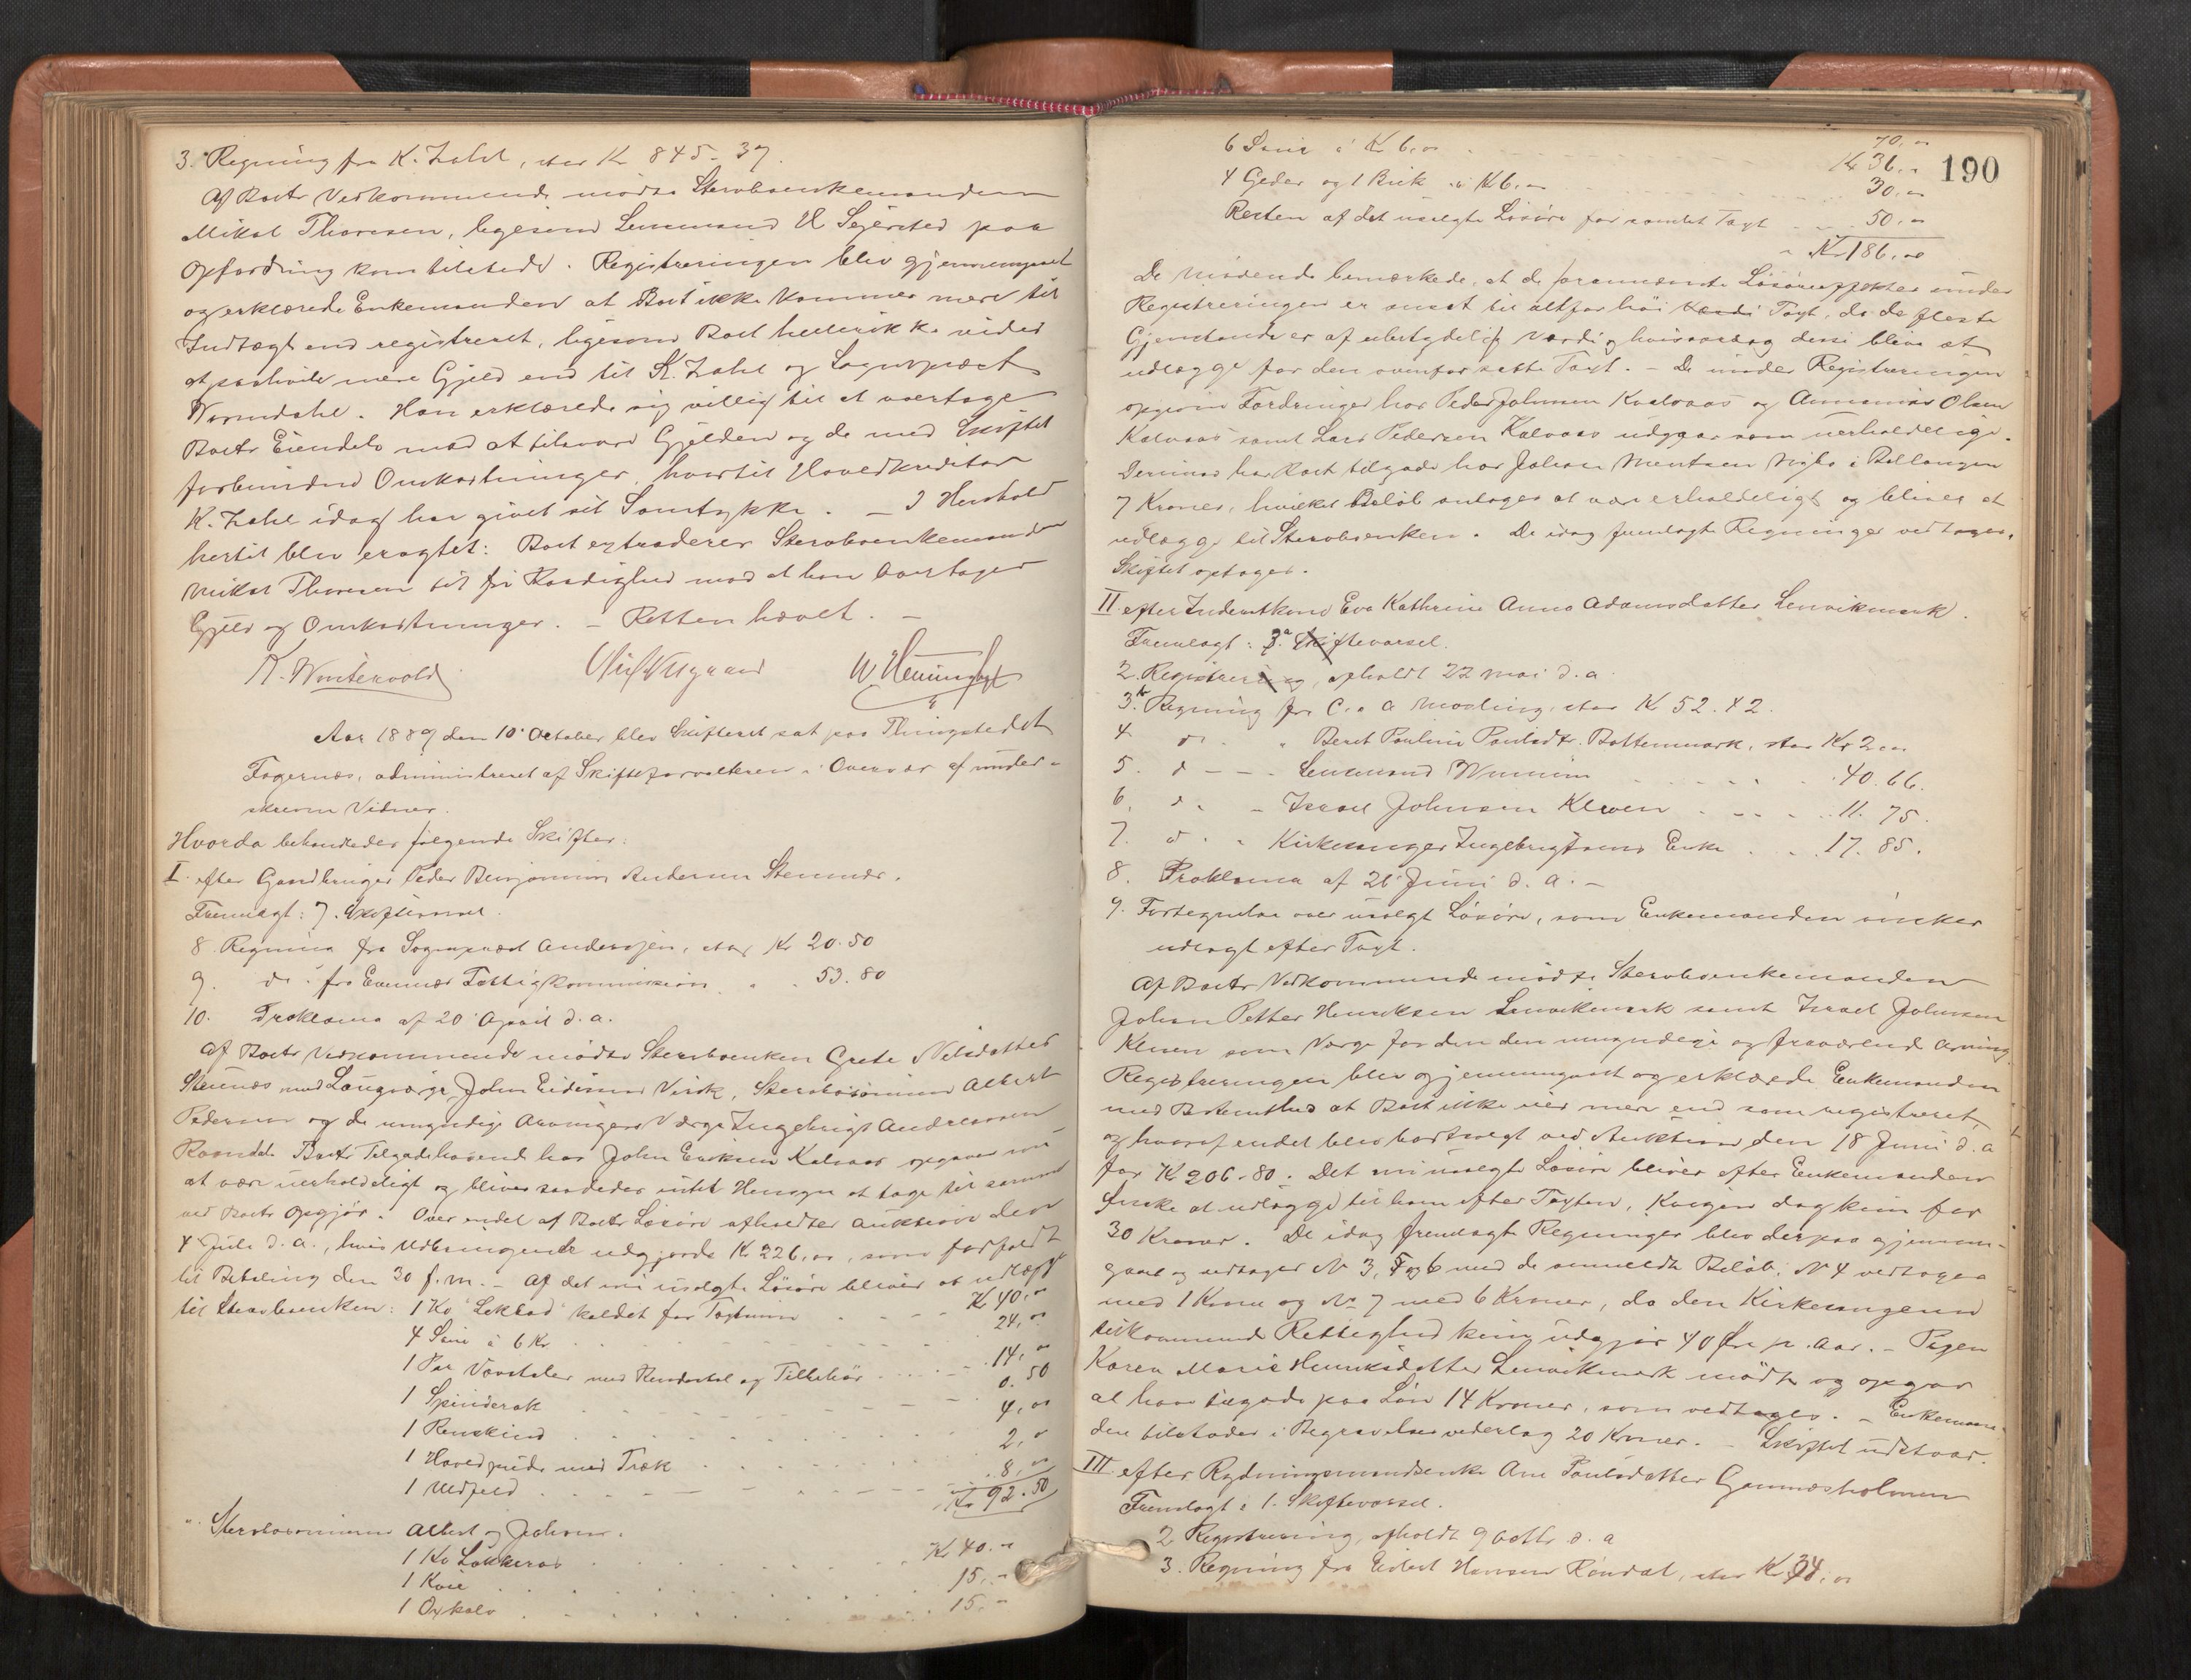 3. Regning fra K. Zahl, stor Kr 845-37.
Af Boets Vedkommende mødte Stervboenkemanden
Mikal Thoresen, ligesom Lensmand Sejersted paa
Opfordring kom tilstede. Registreringen blev gjennemgaaet
og erklærede Enkemanden at Boet ikke kommer mere til
Indtægt end registreret, ligesom Boet heller ikke vides
at paahvile mere Gjeld end til K. Zahl og Sognepræst
Normdahl. Han erklærede sig villig til at overtage
Boets Eiendele mod at tilsvare Gjelden og de med Skiftet
forbundne Omkostninger, hvortil Hovedkreditor
K. Zahl idag har givet sit Samtykke. — I Henhold
hertil blev eragtet: Boet extraderes Stervboenkemand
Mikal Thoresen til fri Raadighed mod at han overtager
Gjeld og Omkostninger. — Retten hævet. —
K. Wintervold
Aar 1889 den 10' October blev Skifteret sat paa Thingstedet
Fagernæs, administreret af Skifteforvalteren i Overvær af under-
skrevne Vidner.
Hvorda behandledes følgende Skifter:
I. efter Gaardbruger Peder Benjamin Andersen Stennæs.
Fremlagt: 7. Skiftevarsel.
8. Regning fra Sognepræst Anderssen, stor Kr 20.50
9. do. fra Evenæs Fattigkommission " " 53.80
10. Proklama af 20' April d. a.
Af Boets Vedkommende mødte Stervboenken Grete Nilsdatter
Stennæs med Laugværge John Virik, Stervbosønnen Albert
Pedersen og de umyndige Arvingers Værge Ingebrigt Andreassen
Boets Tilgodehavende hos John Eriksen Kalvaas opgaves nu
at være uerholdeligt og bliver saaledes intet Hensyn at tage til samme
ved Boets Opgjør. Over endel af Boets Løsøre afholdtes Auktion den
4 Juli d. a., hvis Udbringende udgjorde Kr 226,00, som forfaldt
til Betaling den 30 f. M. — Af det nu usolgte Løsøre bliver at udlægge
til Stervboenken: 1 Ko kaldet for Taxtsum Kr 40,00
4 Sauer à 6 Kr 24,00
1 Par Vævstoler med Rendestol og Tilbehør 14,00
1 Spinderok 0.50
1 Renskind 4,00
1 Hovedpude med Træk 2,00
1 Udfeld 8,00
Kr 92.50
" Stervbosønnerne Albert og Johan:
1 Ko Kr 40.00
1 Kvie 15.00
1 Oxkalv 15.00
190
70,00
6 Sauer à Kr 6,00 Kr 36,00
4 Geder og 1 Buk à Kr 6,00 30,00
Resten af det usolgte Løsøre for samlet Taxt 50,00
Kr 186,00
De mødende bemærkede, at de forannævnte Løsøreeffekter under
Registreringen er ansat til altfor høi Værdi Taxt, da de fleste
Gjenstande er af ubetydelig Værdi, hvisaarsag disse blive at
udlægge for den ovenfor satte Taxt. — De under Registreringen
opgivne Fordringer hos Peder Johnsen Kaalvaas og Olsen
Kalvaas samt Lars Pedersen Kalvaas udgaar som uerholdelige.
Derimod har Boet tilgode hos Johan Mentsen i Ballangen
7 Kroner, hvilket Beløb antages at være erholdeligt og bliver at
udlægge til Stervboenken. De idag fremlagte Regninger vedtages.
Skiftet optages.
II efter Inderstkone Eva Kathrine Anna Adamsdatter Lenvikmark.
Fremlagt: Skiftevarsel.
2. Registrering, afholdt 22 Mai d. a.
3. Regning fra C. A. Mosling, stor Kr 52.42.
4. do. " Beret Pauline Paulsdtr. Bottenmark, stor Kr 2,00
5. d — — Lensmand 40.66.
6. d. — Israel Johnsen Kleven 11.75.
7. d. " Kirkesanger Ingebrigtsens Enke 17.85.
8. Proklama af 21' Juni d. a. —
9. Fortegnelse over usolgt Løsøre, som Enkemanden ønsker
udlagt efter Taxt.
Af Boets Vedkommende mødte Stervboenkemanden
Johan Petter Henriksen Lenvikmark samt Israel Johnsen
Kleven som Værge for den den umyndige og fraværende Arving.
Registreringen blev gjennemgaaet og erklærede Enkemanden
med Bestemthed at Boet ikke eier mere end som registreret,
og hvoraf endel blev bortsolgt ved Auktion den 18 Juni d. a
for Kr 206-80. Det nu usolgte Løsøre bliver efter Enkemandens
Ønske at udlægge til ham efter Taxten, Kvigen dog kun for
30 Kroner. De idag fremlagte Regninger blev derpaa gjennem-
gaaet og vedtages No 3, 5 og 6 med de anmeldte Beløb, No 4 vedtages
med 1 Krone og No 7 med 6 Kroner, da den Kirkesangeren
tilkommende Rettighed kun udgjør 40 Øre p. Aar. — Pigen
Karen Marie Henriksdatter Lenvikmark mødte og opgav
at have tilgode paa Løn 14 Kroner, som vedtages. — Enkeman-
den tilstodes i Begravelsesvederlag 20 Kroner. — Skiftet udstaar.
III. efter Rydningsmandsenke Ane Paulsdatter Gammesholmen
Fremlagt: 1. Skiftevarsel.
2. Registrering, afholdt 9 Octbr d. a
3. Regning fra Hansen Røndal, stor Kr 34,00